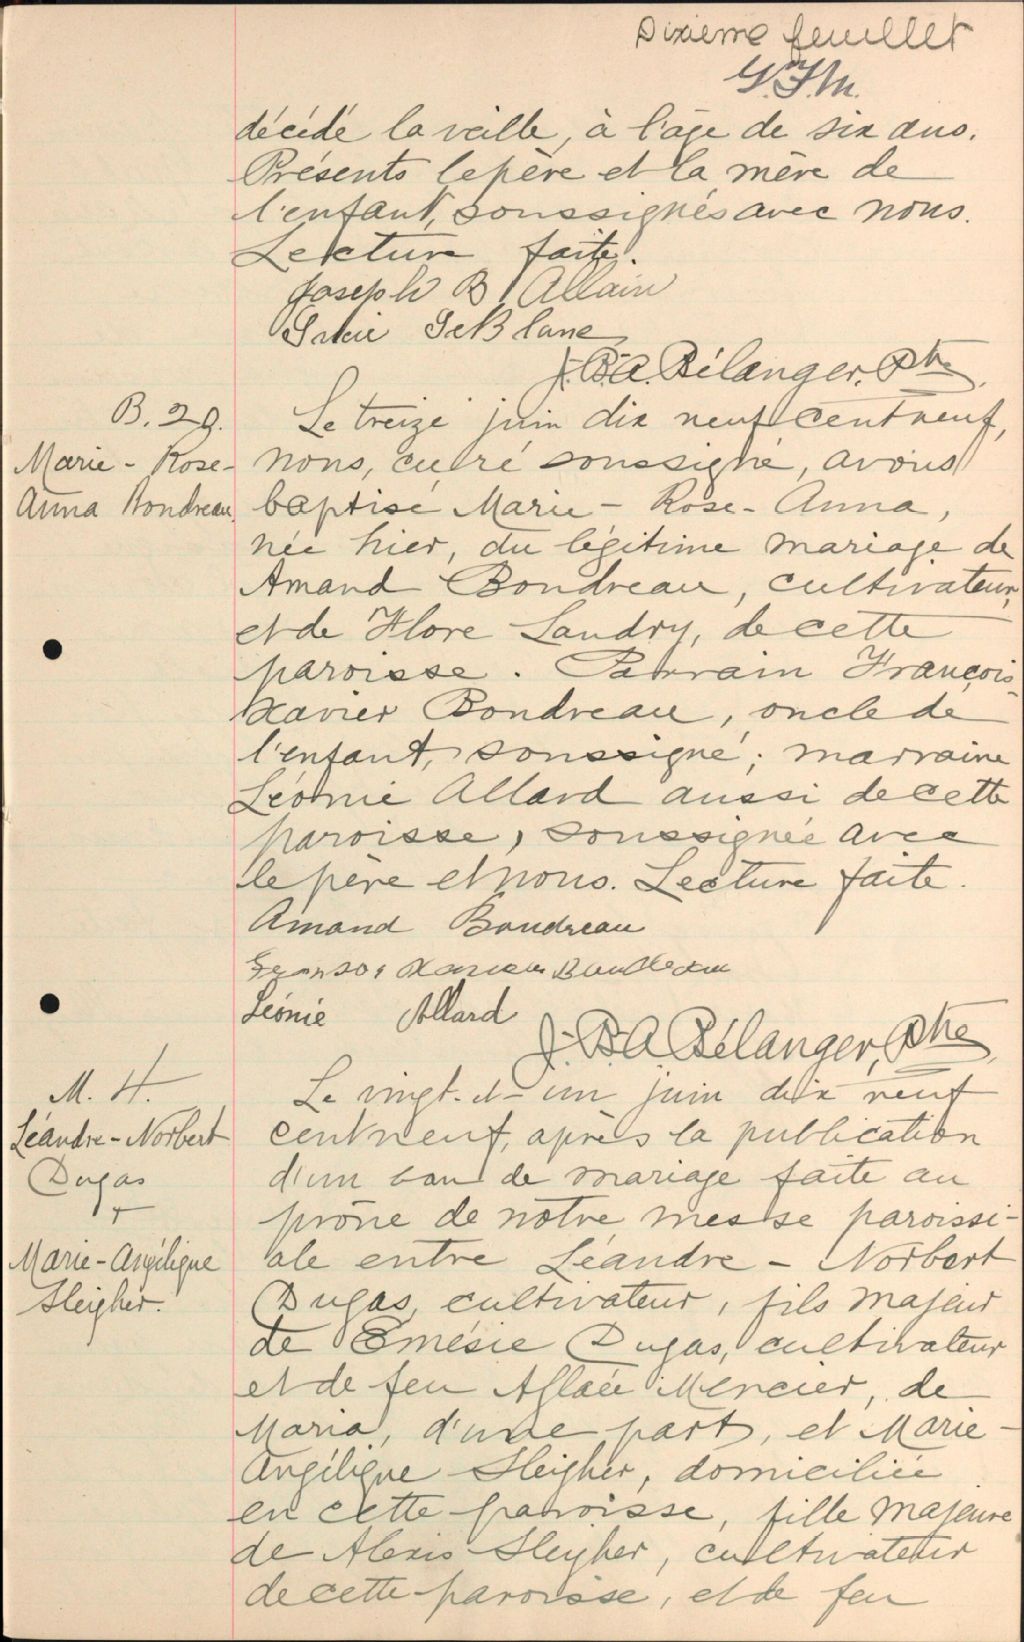 Dixième feuillet
décédé la veille, à l'âge de six ans.
Présents le père et la mère de
l'enfant, soussignés avec nous.
Lecture faite.
Joseph B Allain
LeBlanc
J.-B.-A. Bélanger, Ptre
B. 29.
Marie-Rose-
Anna Boudreau
Le treize juin dix neuf cent neuf,
nous, curé soussigné, avons
baptisé Marie-Rose-Anna,
née hier, du légitime mariage de
Amand Boudreau, cultivateur,
et de Flore Landry, de cette
paroisse. Parrain François-
Xavier Boudreau, oncle de
l'enfant, soussigné; marraine
Léonie Allard aussi de cette
paroisse, soussignée avec
le père et nous. Lecture faite.
Amand Boudreau
Léonie Allard
J.-B.-A. Bélanger, Ptre
M. 4.
Léandre-Norbert
Dugas
+
Marie-Angélique
Sleigher.
Le vingt-et-un juin dix neuf
cent neuf, après la publication
d'un ban de mariage faite au
prône de notre messe paroissi-
ale entre Léandre-Norbert
Dugas, cultivateur, fils majeur
de Emésie Dugas, cultivateur
et de feu Aglaée Mercier, de
Maria, d'une part, et Marie-
Angélique Sleigher, domiciliée
en cette paroisse, fille majeure
de Alexis Sleigher, cultivateur
de cette paroisse, et de feu